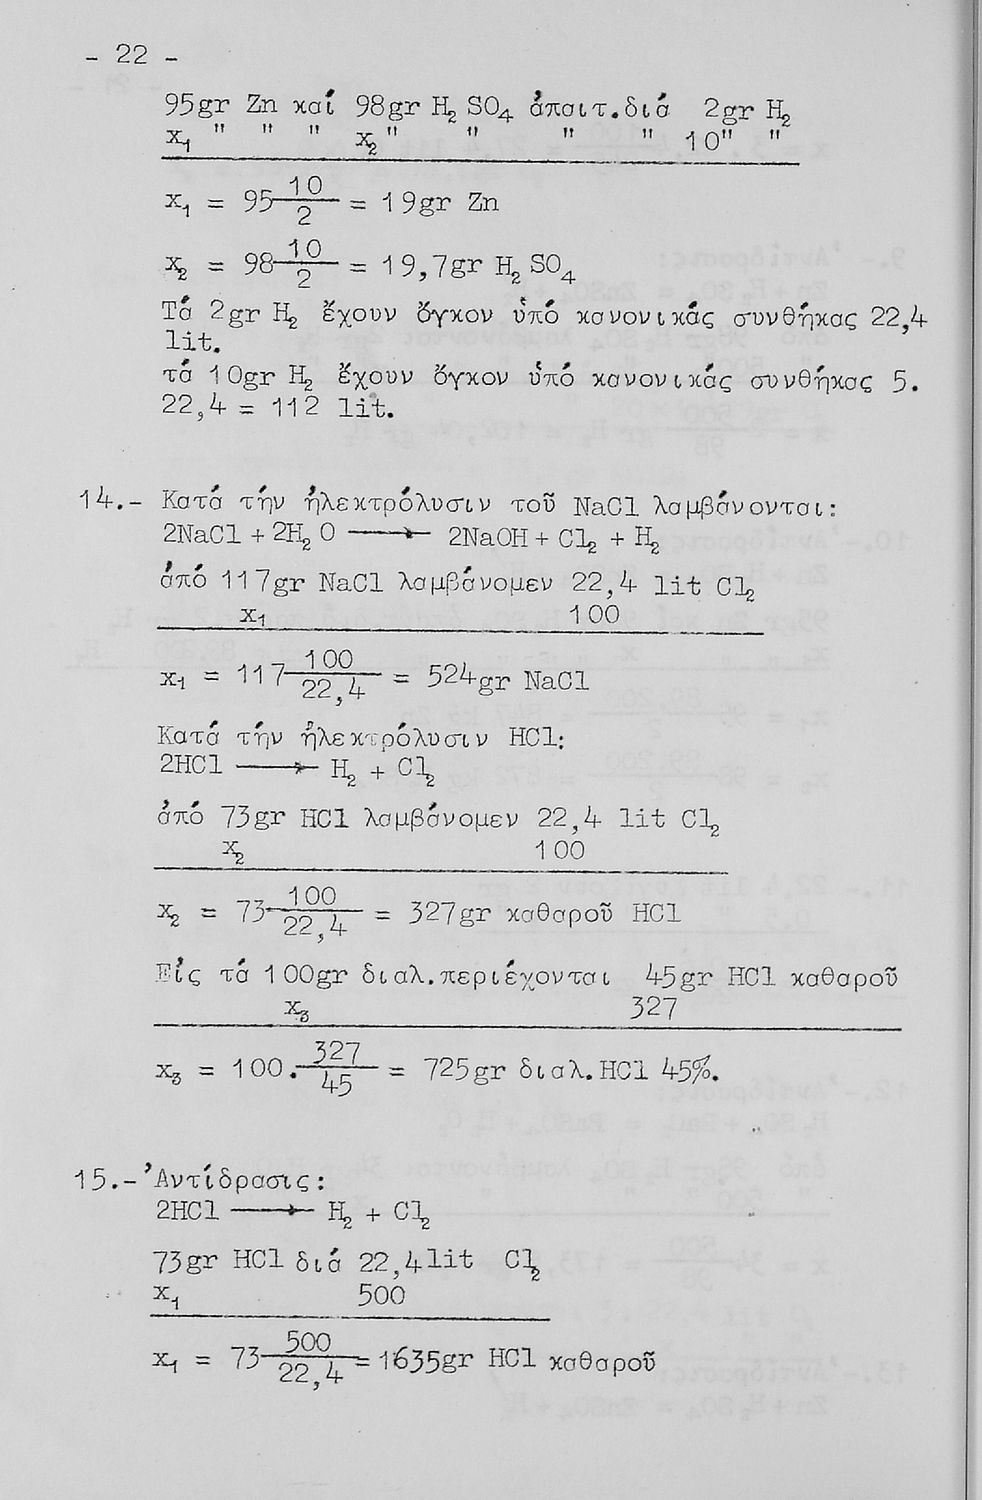 - 22 -
95gr Zn καί 98gr H₂SO₄ ἀπαιτ.διά 2gr H₂
x₁ " " " x₂ " " " " 10" "
x₁ = 95 10/2 = 19gr Zn
x₂ = 98 10/2 = 19,7gr H₂SO₄
Τά 2gr H₂ ἔχουν ὄγκον ὑπό κανονικάς συνθήκας 22,4
lit.
τά 10gr H₂ ἔχουν ὄγκον ὑπό κανονικάς συνθήκας 5.
22,4 = 112 lit.
14.- Κατά τήν ἠλεκτρόλυσιν τοῦ NaCl λαμβάνονται:
2NaCl + 2H₂O → 2NaOH + Cl₂ + H₂
ἀπό 117gr NaCl λαμβάνομεν 22,4 lit Cl₂
x₁ 100
x₁ = 117 100/22,4 = 524gr NaCl
Κατά τήν ἠλεκτρόλυσιν HCl:
2HCl → H₂ + Cl₂
ἀπό 73gr HCl λαμβάνομεν 22,4 lit Cl₂
x₂ 100
x₂ = 73 100/22,4 = 327gr καθαροῦ HCl
Εἰς τά 100gr διαλ.περιέχονται 45gr HCl καθαροῦ
x₃ 327
x₃ = 100. 327/45 = 725gr διαλ.HCl 45%.
15.- Ἀντίδρασις:
2HCl → H₂ + Cl₂
73gr HCl διά 22,4lit Cl₂
x₁ 500
x₁ = 73 500/22,4 = 1635gr HCl καθαροῦ